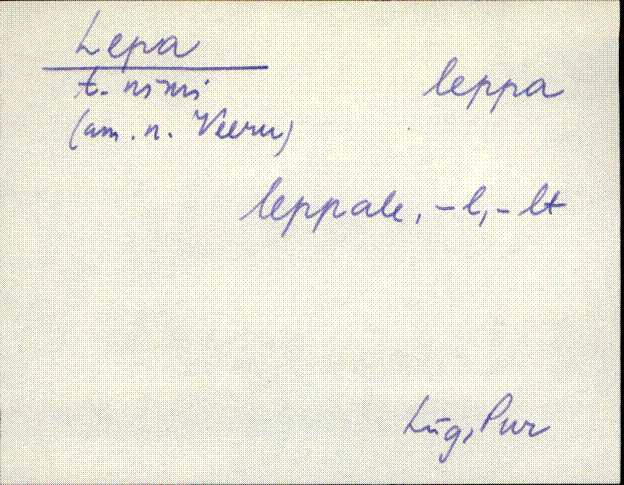 Lepa
t. nimi
leppa
(am. n. Veeru)
leppale, -l, -lt
Lüg, Pur